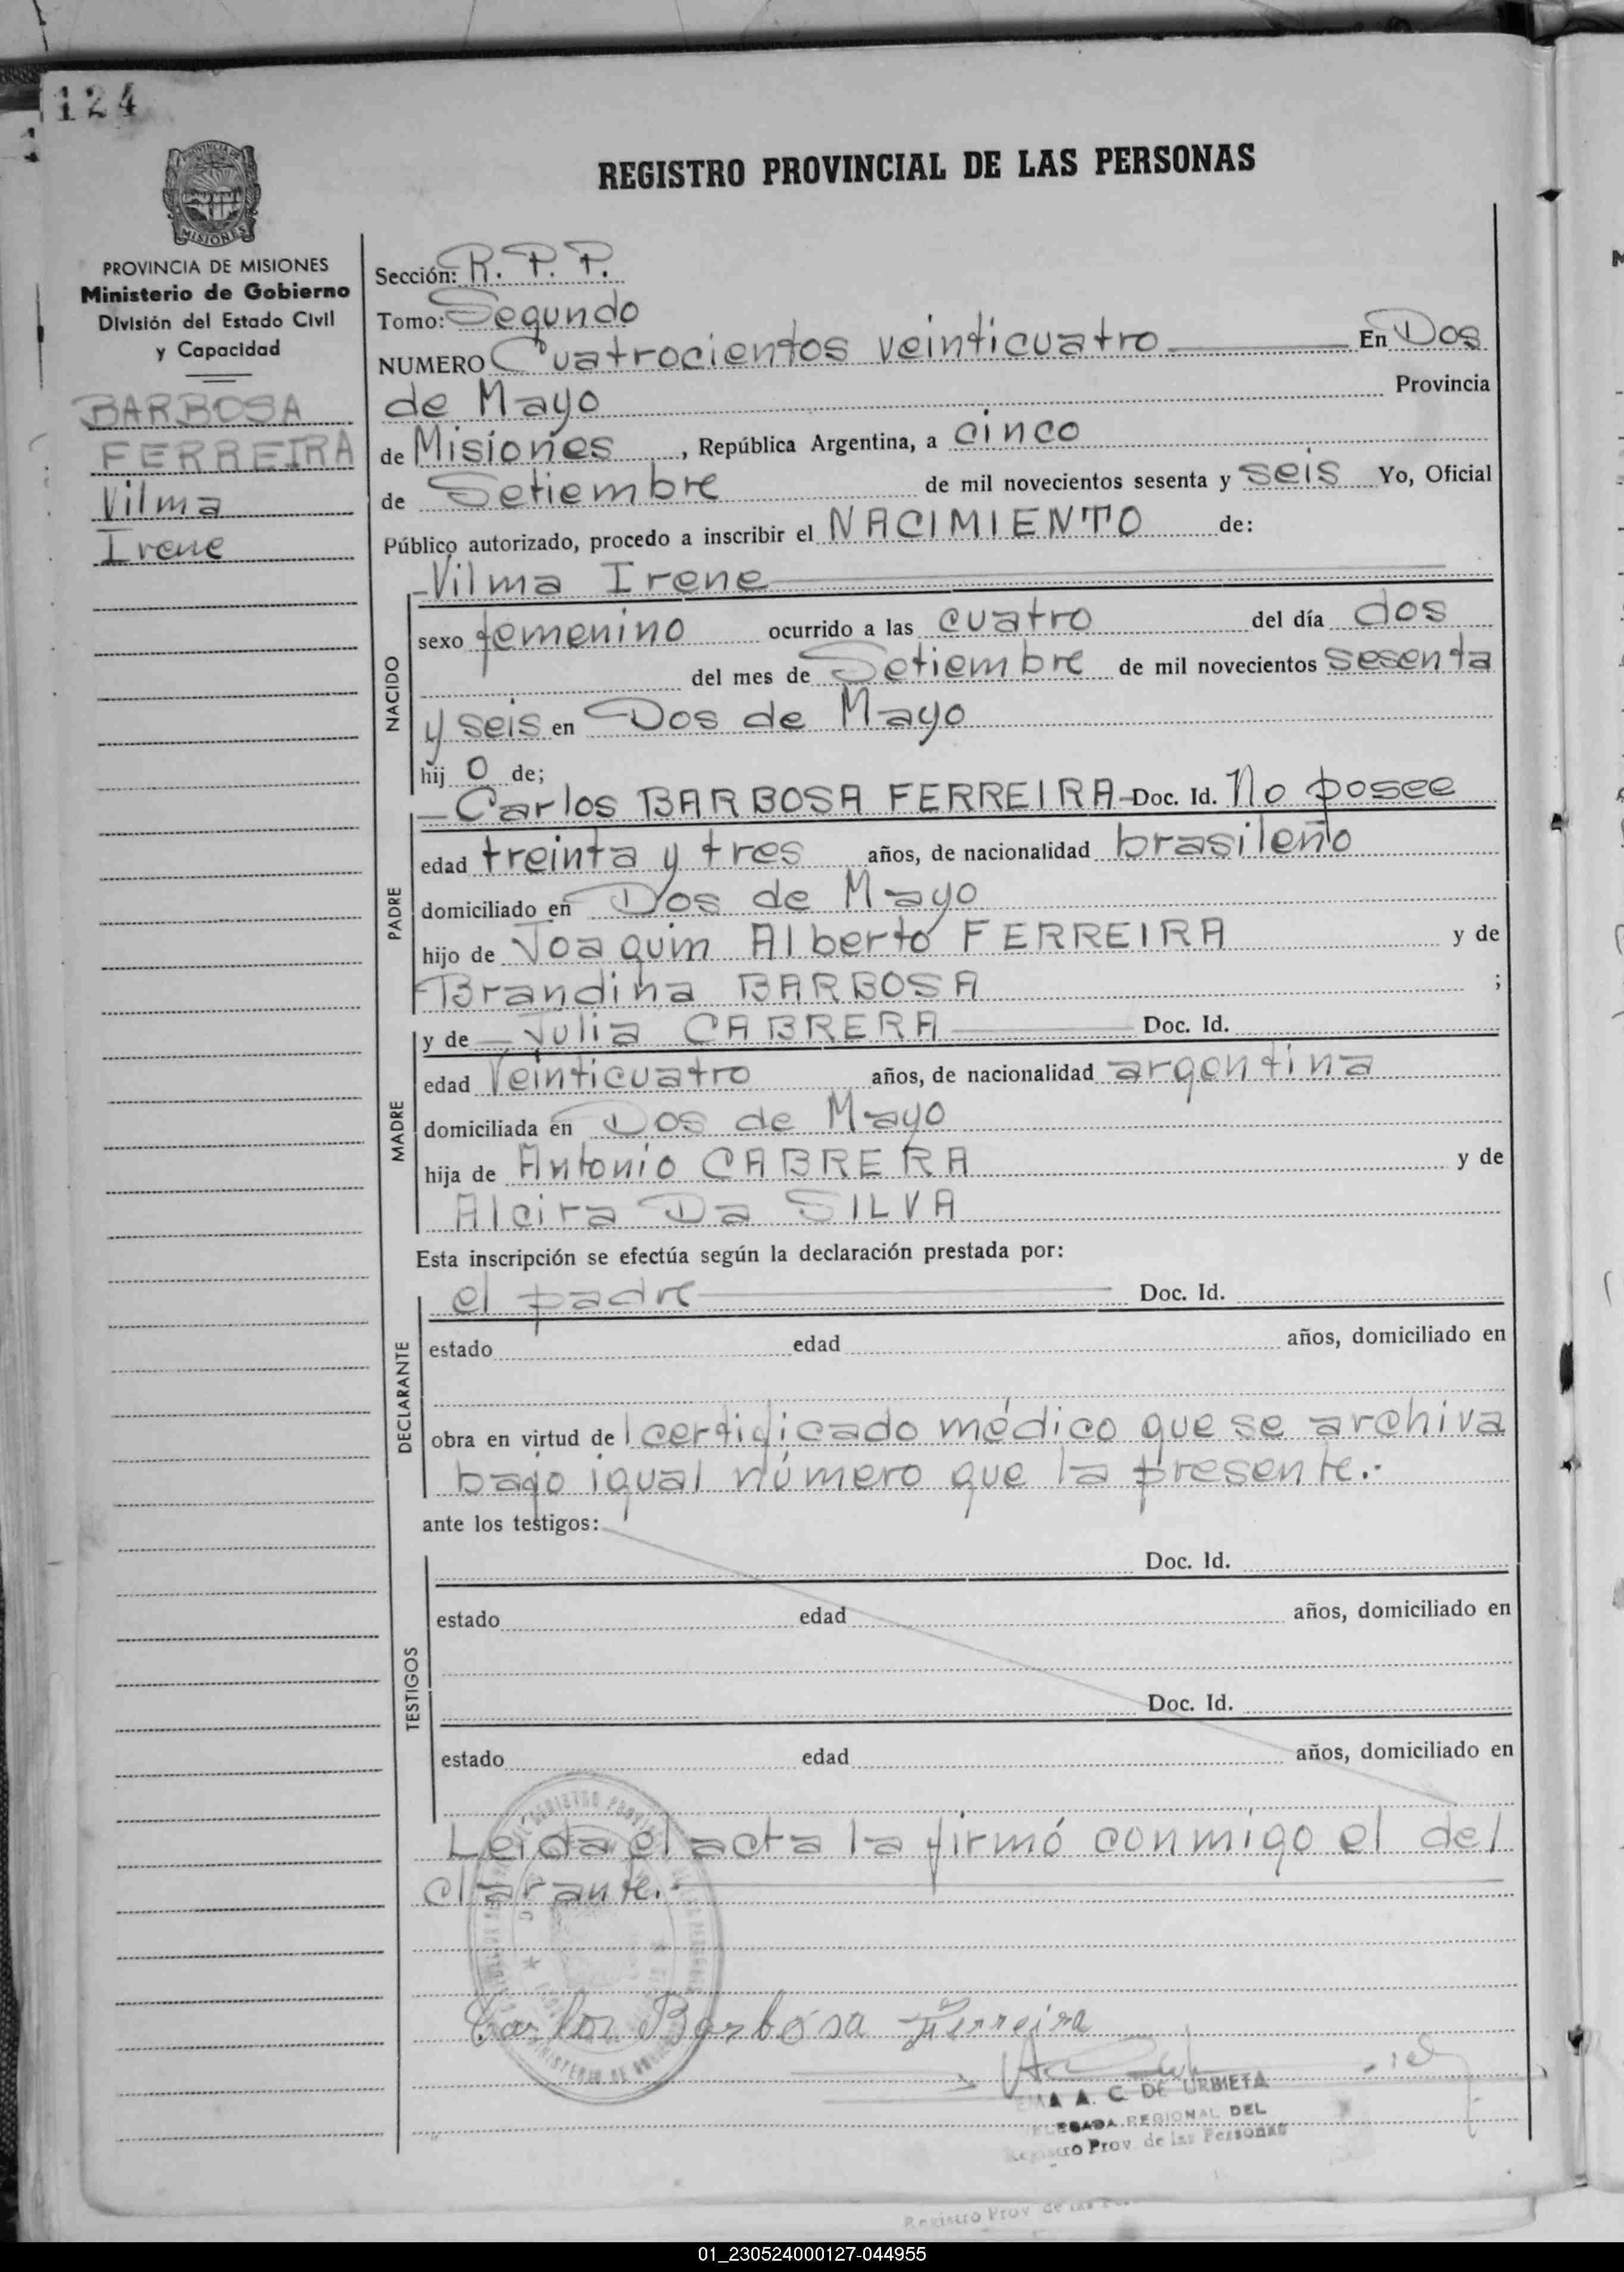 124
REGISTRO PROVINCIAL DE LAS PERSONAS
PROVINCIA DE
MISIONES
PROVINCIA DE MISIONES
Ministerio de Gobierno
División del Estado Civil
y Capacidad
BARBOSA
FERREIRA
Vilma
Irene
Sección: R. P. P.
Tomo: Segundo
NUMERO Cuatrocientos veinticuatro En Dos
de Mayo Provincia
de Misiones , República Argentina, a cinco
de Setiembre de mil novecientos sesenta y seis Yo, Oficial
Público autorizado, procedo a inscribir el NACIMIENTO de:
NACIDO
-Vilma Irene
sexo femenino ocurrido a las cuatro del día dos
del mes de Setiembre de mil novecientos sesenta
y seis en Dos de Mayo
hij o de;
PADRE
- Carlos BARBOSA FERREIRA- Doc. Id. No posee
edad treinta y tres años, de nacionalidad brasileño
domiciliado en Dos de Mayo
hijo de Joaquin Alberto FERREIRA y de
Brandina BARBOSA ;
MADRE
y de - Julia CABRERA Doc. Id.
edad Veinticuatro años, de nacionalidad argentina
domiciliada en Dos de Mayo
hija de Antonio CABRERA y de
Alcira Da SILVA
Esta inscripción se efectúa según la declaración prestada por:
DECLARANTE
el padre Doc. Id.
estado edad años, domiciliado en
obra en virtud de l certificado médico que se archiva
bajo igual número que la presente.-
ante los testigos:
TESTIGOS
Doc. Id.
estado edad años, domiciliado en
Doc. Id.
estado edad años, domiciliado en
Leída el acta la firmó conmigo el del
clarante.-
Carlos Barbosa Ferreira
EMA A. C. DE URBIETA
DELEGADA REGIONAL DEL
Registro Prov. de las Personas
Registro Prov de las
01_230524000127-044955